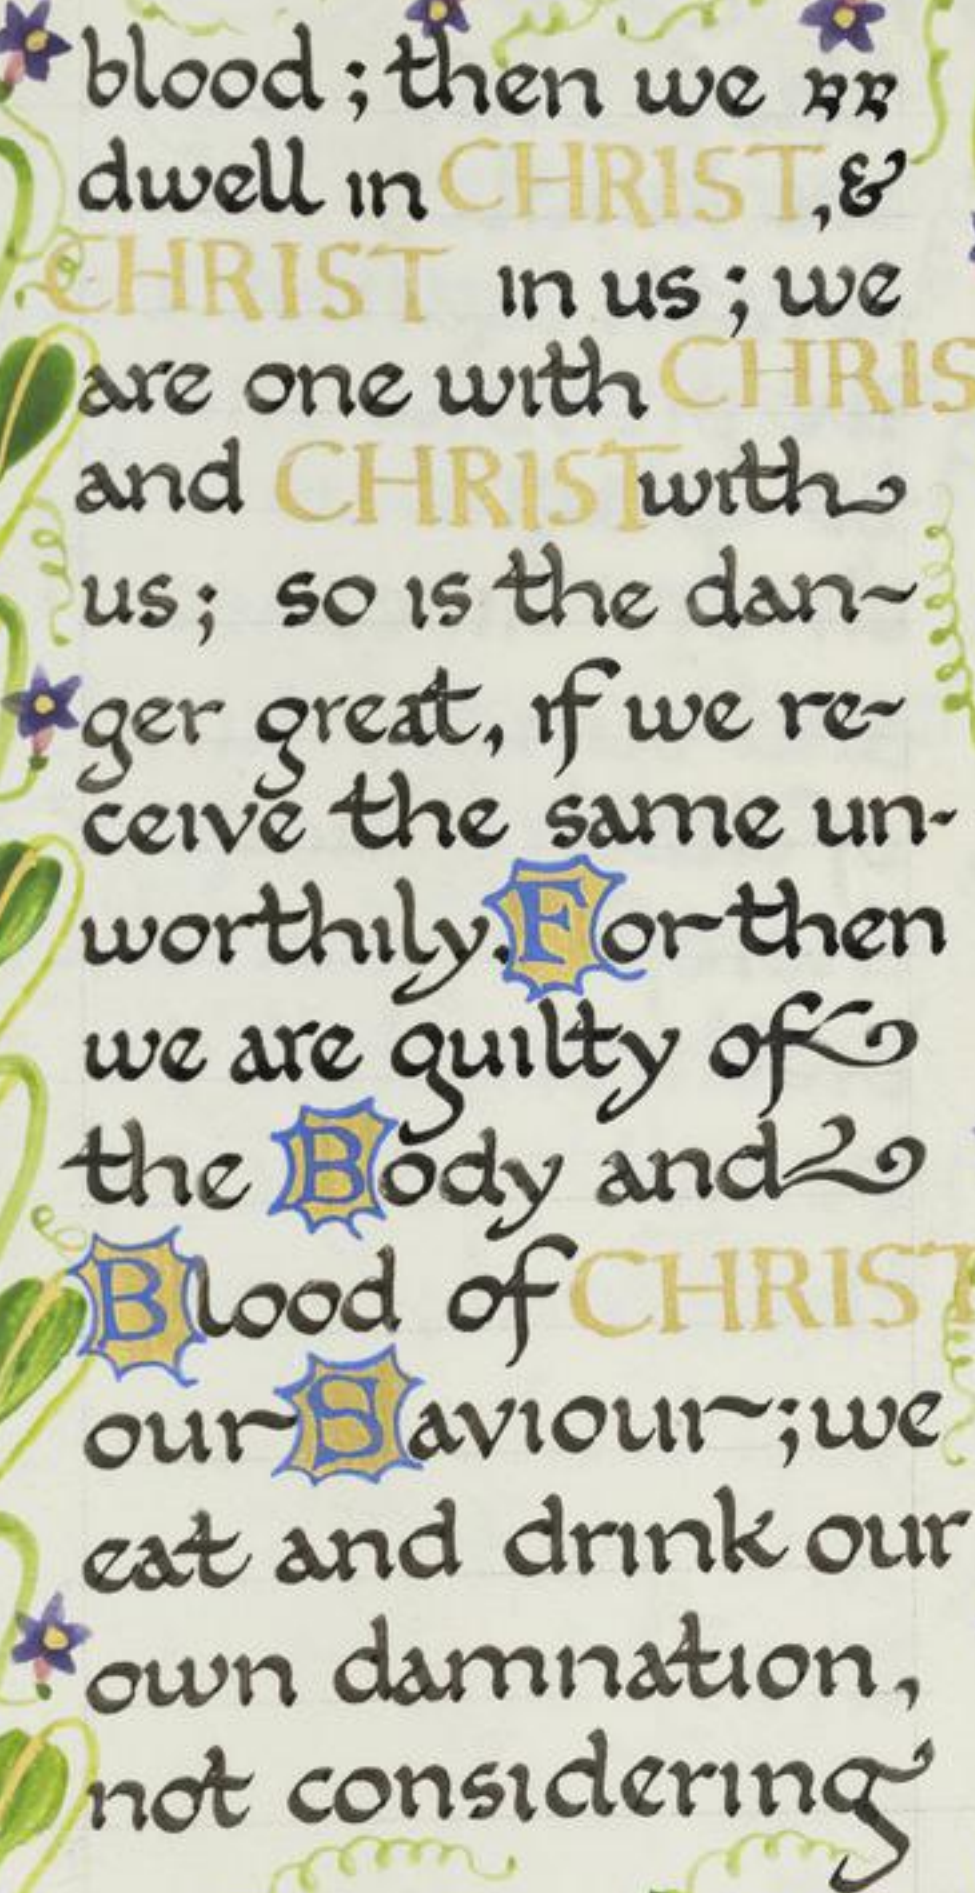 blood; then we
dwell in CHRIST, &
CHRIST in us; we
are one with CHRIS
and CHRIST with
us; so is the dan-
ger great, if we re-
ceive the same un-
worthily. For then
we are guilty of
the Body and
Blood of CHRIST
our Saviour; we
eat and drink our
own damnation,
not considering